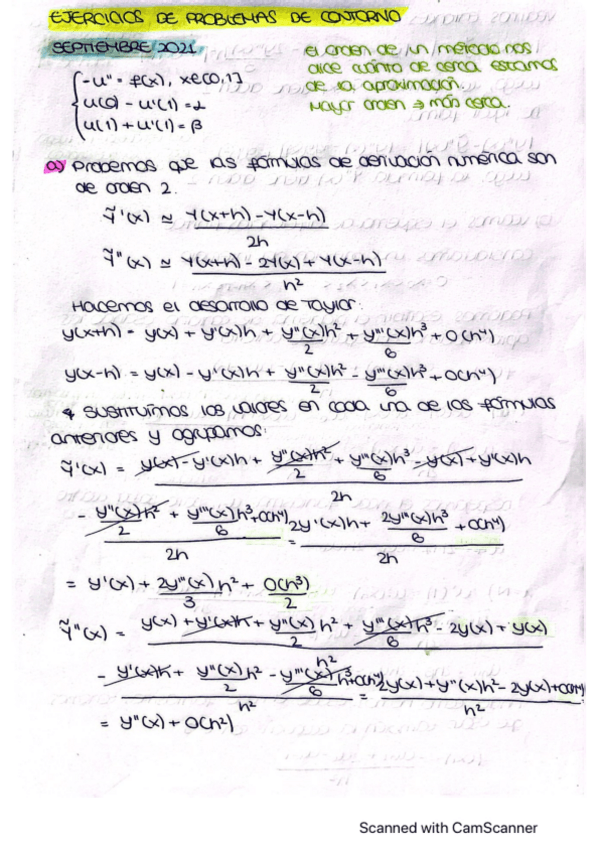 EJERCICIOS DE PROBLEMAS DE CONTORNO
SEPTIEMBRE 2021
El orden de un método nos
dice cuánto de cerca estamos
de la aproximación.
Mayor orden ⇒ más cerca.
-u'' = f(x), x∈(0,1]
u(0) - u'(1) = α
u(1) + u'(1) = β
a) Probemos que las fórmulas de derivación numérica son
de orden 2.
ỹ'(x) ≃ (y(x+h) - y(x-h)) / 2h
ỹ''(x) ≃ (y(x+h) - 2y(x) + y(x-h)) / h²
Hacemos el desarrollo de Taylor:
y(x+h) = y(x) + y'(x)h + y''(x)h²/2 + y'''(x)h³/6 + O(h⁴)
y(x-h) = y(x) - y'(x)h + y''(x)h²/2 - y'''(x)h³/6 + O(h⁴)
y sustituímos los valores en cada una de las fórmulas
anteriores y agrupamos:
ỹ'(x) = (y(x) - y'(x)h + y''(x)h²/2 + y'''(x)h³/6 - y(x) + y'(x)h) / 2h
(- y''(x)h²/2 + y'''(x)h³/6 + O(h⁴)) / 2h = (2y'(x)h + 2y'''(x)h³/6 + O(h⁴)) / 2h
= y'(x) + 2y'''(x)h²/3 + O(h³)/2
ỹ''(x) = (y(x) + y'(x)h + y''(x)h²/2 + y'''(x)h³/6 - 2y(x) + y(x)) / h²
(- y'(x)h + y''(x)h²/2 - y'''(x)h³/6 + O(h⁴)) / h² = (2y(x) + y''(x)h² - 2y(x) + O(h⁴)) / h²
= y''(x) + O(h²)
Scanned with CamScanner